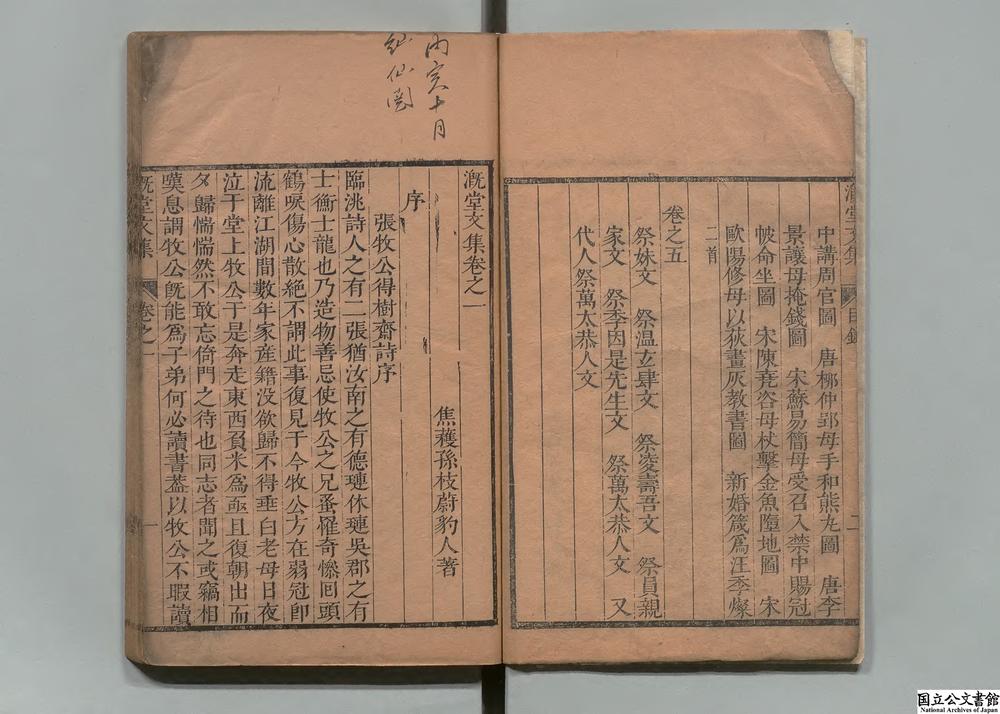 漑堂文集 目錄 二
中講周官圖 唐柳仲郢母手和熊丸圖 唐李
景讓母掩錢圖 宋蘇易簡母受召入禁中賜冠
帔命坐圖 宋陳堯咨母杖擊金魚墮地圖 宋
歐陽修母以荻畫灰教書圖 新婚箴爲汪季燦
二首
卷之五
祭妹文 祭温𤣥肆文 祭凌壽吾文 祭員親
家文 祭季因是先生文 祭萬太恭人文 又
代人祭萬太恭人文
丙寅十月
漑堂文集卷之一
焦穫孫枝蔚豹人著
序
張牧公得樹齋詩序
臨洮詩人之有二張猶汝南之有德璉休璉吳郡之有
士衡士龍也乃造物善忌使牧公之兄蚤罹奇慘囘頭
鶴唳傷心散絶不謂此事復見于今牧公方在弱冠卽
流離江湖間數年家産籍没欲歸不得垂白老母日夜
泣于堂上牧公于是奔走東西負米爲亟且復朝出而
夕歸惴惴然不敢忘倚門之待也同志者聞之或竊相
嘆息謂牧公旣能爲子弟何必讀書葢以牧公不暇讀
漑堂文集 卷之一 一
国立公文書館
National Archives of Japan